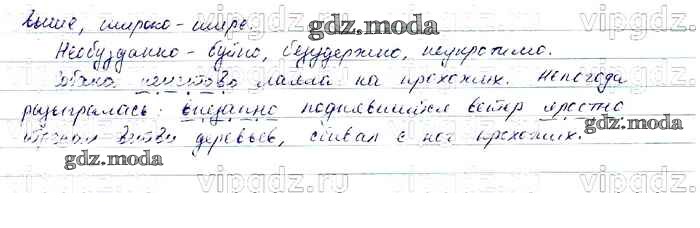 выше, широко - шире.
Необузданно - буйно, безудержно, неукротимо.
Собака неистово лаяла на прохожих. Непогода
разыгралась: внезапно поднявшийся ветер яростно
ветви деревьев, сбивал с ног прохожих.
gdz.moda
gdz.moda
gdz.moda
gdz.moda
vipgdz.ru
vipgdz.ru
vipgdz.ru
vipgdz.ru